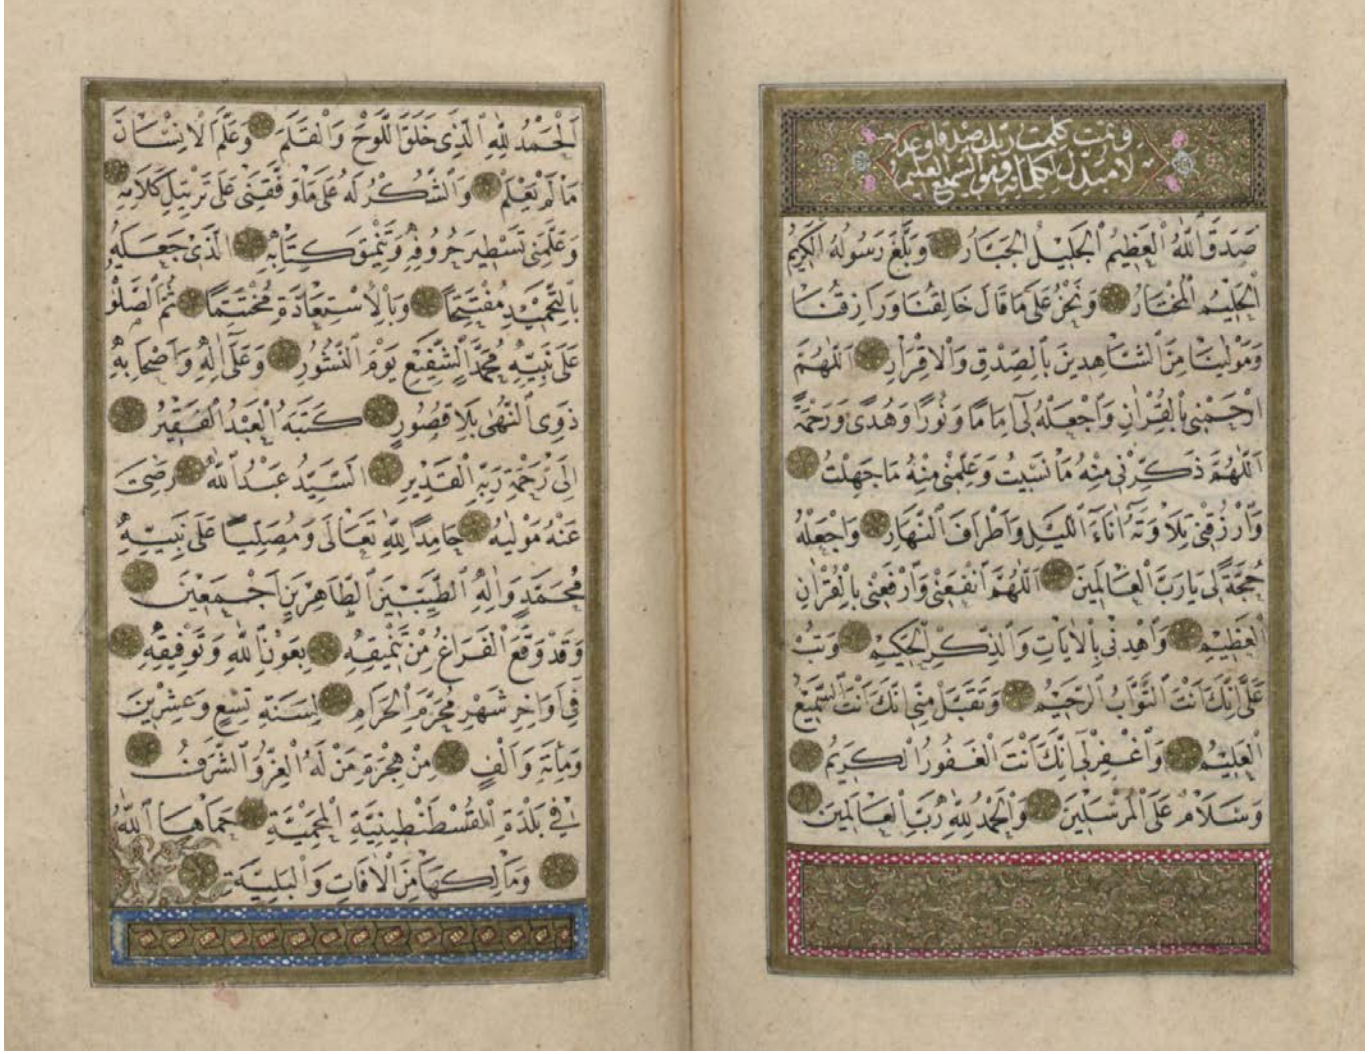 وتمت كلمت ربك صدقا وعدلا
لا مبدل لكلماته وهو السميع العليم
صَدَقَ ٱللّٰهُ ٱلْعَظِيمُ ٱلْجَلِيلُ ٱلْجَبَّارُ وَبَلَّغَ رَسُولُهُ ٱلْكَرِيمُ
ٱلْحَلِيمُ ٱلْمُخْتَارُ وَنَحْنُ عَلَى مَا قَالَ خَالِقُنَا وَرَازِقُنَا
وَمَوْلٰينَا مِنَ ٱلشَّاهِدِينَ بِٱلصِّدْقِ وَٱلْاِقْرَارِ اَللّٰهُمَّ
ارْحَمْنِي بِٱلْقُرْاٰنِ وَٱجْعَلْهُ لِى اِمَامًا وَنُورًا وَهُدًى وَرَحْمَةً
اَللّٰهُمَّ ذَكِّرْنِى مِنْهُ مَا نَسِيتُ وَعَلِّمْنِى مِنْهُ مَا جَهِلْتُ
وَٱرْزُقْنِى تِلَاوَتَهُ اٰنَاءَ ٱلَّيْلِ وَاَطْرَافَ ٱلنَّهَارِ وَٱجْعَلْهُ
حُجَّةً لِى يَا رَبَّ ٱلْعَالَمِينَ اَللّٰهُمَّ ٱنْفَعْنِى وَٱرْفَعْنِى بِٱلْقُرْاٰنِ
ٱلْعَظِيمِ وَٱهْدِنِى بِٱلْاٰيَاتِ وَٱلذِّكْرِ ٱلْحَكِيمِ وَتُبْ
عَلَىَّ اِنَّكَ اَنْتَ ٱلتَّوَّابُ ٱلرَّحِيمُ وَتَقَبَّلْ مِنِّى اِنَّكَ اَنْتَ ٱلسَّمِيعُ
ٱلْعَلِيمُ وَٱغْفِرْ لِى اِنَّكَ اَنْتَ ٱلْغَفُورُ ٱلْكَرِيمُ
وَسَلَامٌ عَلَى ٱلْمُرْسَلِينَ وَٱلْحَمْدُ لِلّٰهِ رَبِّ ٱلْعَالَمِينَ
اَلْحَمْدُ لِلّٰهِ ٱلَّذِى خَلَقَ ٱللَّوْحَ وَٱلْقَلَمَ وَعَلَّمَ ٱلْاِنْسَانَ
مَا لَمْ يَعْلَمْ وَٱلشُّكْرُ لَهُ عَلَى مَا وَفَّقَنِى عَلَى تَرْتِيلِ كَلَامِهِ
وَعَلَّمَنِى تَسْطِيرَ حُرُوفِهِ وَتَنْمِيقَ كِتَابِهِ ٱلَّذِى جَعَلَهُ
بِٱلتَّحْمِيدِ مُفْتَتِحًا وَبِٱلْاِسْتِعَاذَةِ مُخْتَتِمًا ثُمَّ ٱلصَّلٰوةُ
عَلَى نَبِيِّهِ مُحَمَّدٍ ٱلشَّفِيعِ يَوْمَ ٱلنُّشُورِ وَعَلَى اٰلِهِ وَاَصْحَابِهِ
ذَوِى ٱلنُّهٰى بِلَا قُصُورٍ كَتَبَهُ ٱلْعَبْدُ ٱلْفَقِيرُ
اِلَى رَحْمَةِ رَبِّهِ ٱلْقَدِيرِ اَلسَّيِّدُ عَبْدُ ٱللّٰهِ رَضِىَ
عَنْهُ مَوْلٰيهُ حَامِدًا لِلّٰهِ تَعَالَى وَمُصَلِّيًا عَلَى نَبِيِّهِ
مُحَمَّدٍ وَاٰلِهِ ٱلطَّيِّبِينَ ٱلطَّاهِرِينَ اَجْمَعِينَ
وَقَدْ وَقَعَ ٱلْفَرَاغُ مِنْ تَنْمِيقِهِ بِعَوْنِ ٱللّٰهِ وَتَوْفِيقِهِ
فِى اَوَاخِرِ شَهْرِ مُحَرَّمِ ٱلْحَرَامِ لِسَنَةِ تِسْعٍ وَعِشْرِينَ
وَمِائَةٍ وَاَلْفٍ مِنْ هِجْرَةِ مَنْ لَهُ ٱلْعِزُّ وَٱلشَّرَفُ
فِى بَلْدَةِ ٱلْقُسْطَنْطِينِيَّةِ ٱلْمَحْمِيَّةِ حَمَاهَا ٱللّٰهُ
وَمَالِكَهَا مِنَ ٱلْاٰفَاتِ وَٱلْبَلِيَّةِ